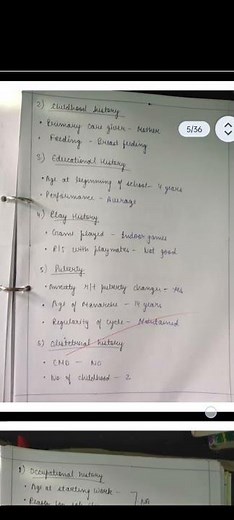 2) Childhood history
• Primary care giver - Mother
5/36
• Feeding - Breast feeding
3) Educational History
• Age at beginning of school - 4 years
• Performance - Average
4) Play History
• Game played - Indoor games
• R/S with playmates - Not good
5) Puberty
• Anxiety r/t puberty changes - Yes
• Age of Menarche - 14 years
• Regularity of cycle - Maintained
6) Obstetrical history
• - NO
• No of childhood - 2
7) Occupational history
• Age at starting work -
• Reason for
NO